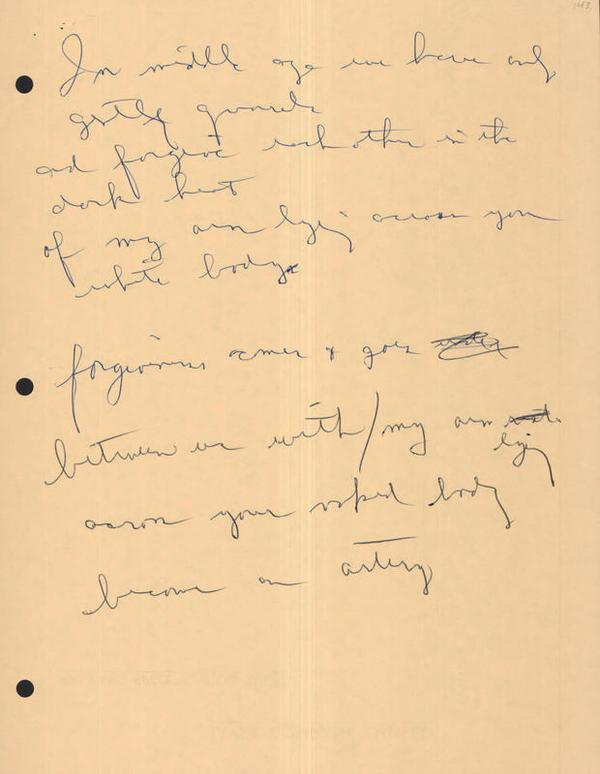 In middle age we have only
gentle quarrels
and forgive each other in the
dark heat
of my arm lying across your
white body
forgiveness comes & goes
between us with / my arm
lying
across your naked body
become an artery